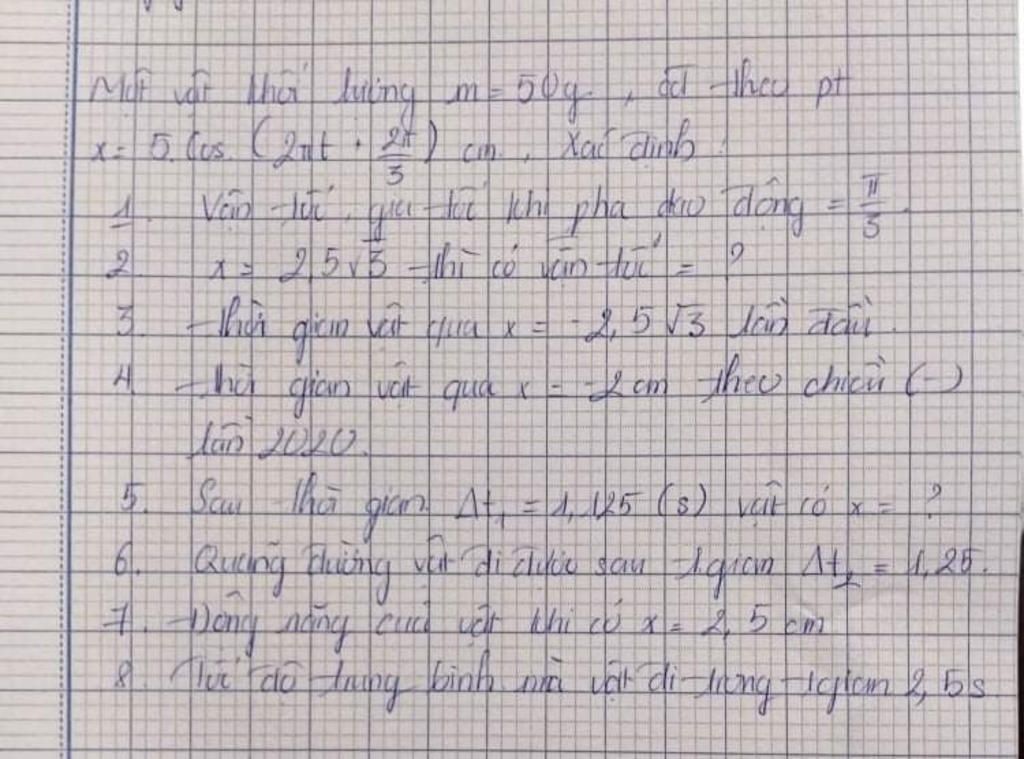 Một vật khối lượng m = 50g, dđ theo pt
x = 5.Cos (2πt + 2π/3) cm. Xác định
1. Vận tốc, gia tốc khi pha dao động = π/3.
2. x = 2,5√3 thì có vận tốc = ?
3. Thời gian vật qua x = -2,5√3 lần đầu.
4. thời gian vật qua x = -2cm theo chiều (-)
lần 2020.
5. Sau thời gian Δt₁ = 1,125 (s) vật có x = ?
6. Quãng đường vật đi được sau tgian Δt₂ = 1,25.
7. Động năng của vật khi có x = 2,5 cm
8. Tốc độ trung bình mà vật đi trong tgian 2,5s